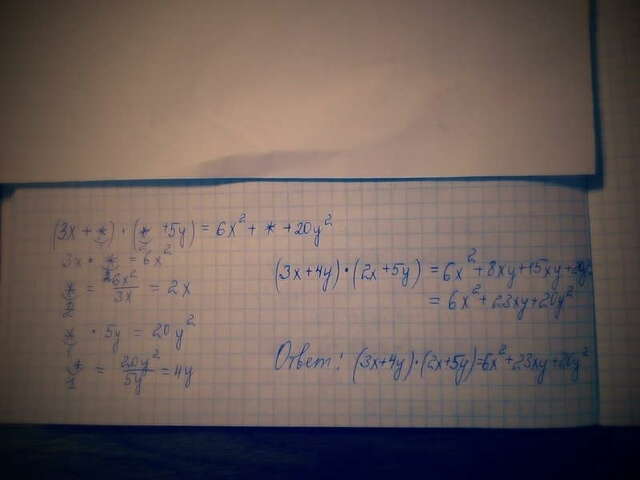 (3x + *₁) · (*₂ + 5y) = 6x² + * + 20y²
3x · *₂ = 6x²
*₂ = 6x²/3x = 2x
*₁ · 5y = 20y²
*₁ = 20y²/5y = 4y
(3x+4y)·(2x+5y) = 6x²+8xy+15xy+20y²
= 6x²+23xy+20y²
Ответ: (3x+4y)·(2x+5y)=6x²+23xy+20y²